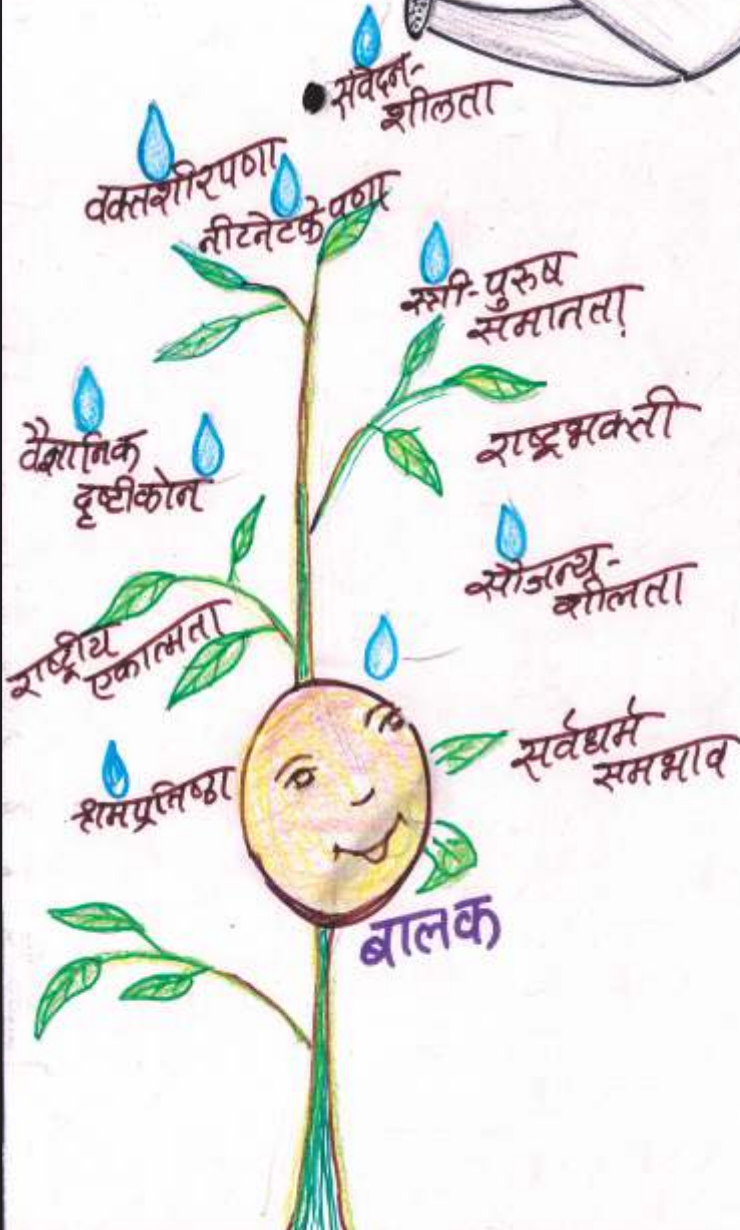 संवेदन-
शीलता
वक्तशीरपणा
नीटनेटकेपणा
स्त्री-पुरुष
समानता
राष्ट्रभक्ती
वैज्ञानिक
दृष्टीकोन
सौजन्य-
शीलता
राष्ट्रीय
एकात्मता
सर्वधर्म
समभाव
श्रमप्रतिष्ठा
बालक